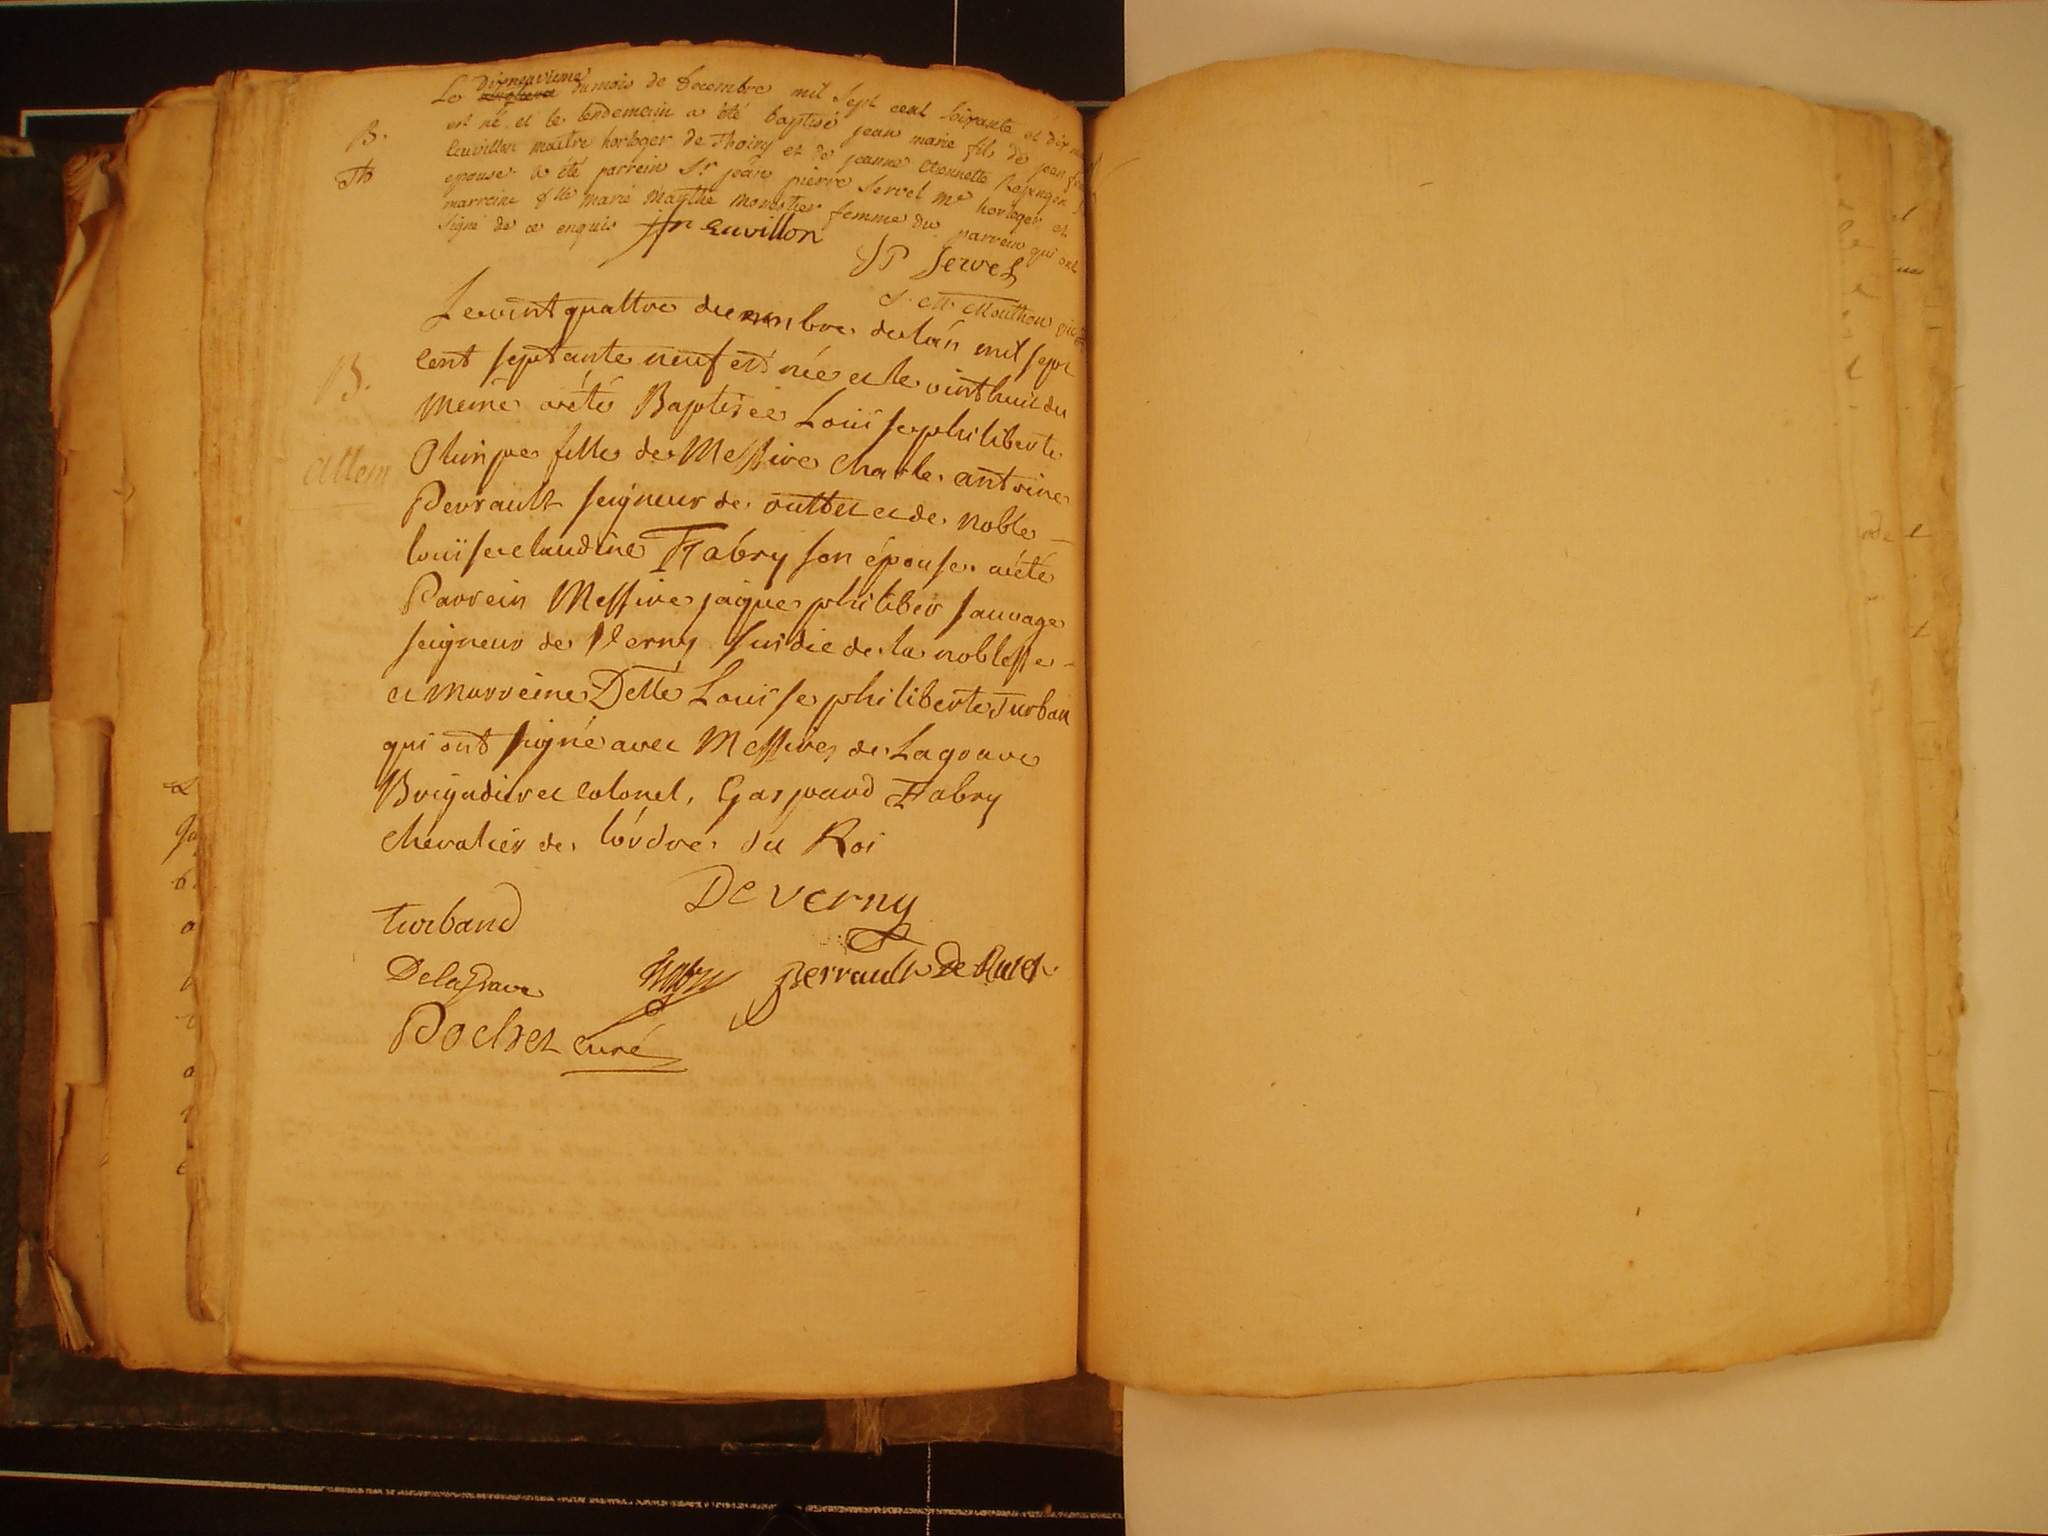 Le dixneuvieme du mois de Decembre mil sept cent soixante et dix
est né et le lendemain a été baptisé jean marie fils de jean
B. Cuvillon maitre horloger de Thoiry et de jeanne etiennette
Th epouse a été parrein Sr jean pierre Servel Me horloger et
marreine dlle marie Marthe femme du parrein qui ont
signé de ce enquis Cuvillon
JP Servel
Le vint quattre decembre de lán mil sept
B. cent septante neuf est née et le vinthuit du
meme aété Baptisée Louïse philiberte
allem Olimpe fille de Messire Charle antoine
Perrault seigneur de ruttet et de noble
louïse claudine Fabry son épouse aété
Parrein Messire jaque philiber sauvage
seigneur de Verny sindic de la noblesse
et marreine Delle Louise philiberte Turban
qui ont signé avec Messires de Lagrave
Brigadier et Colonel, Gaspard Fabry
chevalier de lórdre du Roi
De verny
turband
DelaGrave fabry perrault De Rutet
Pochet curé